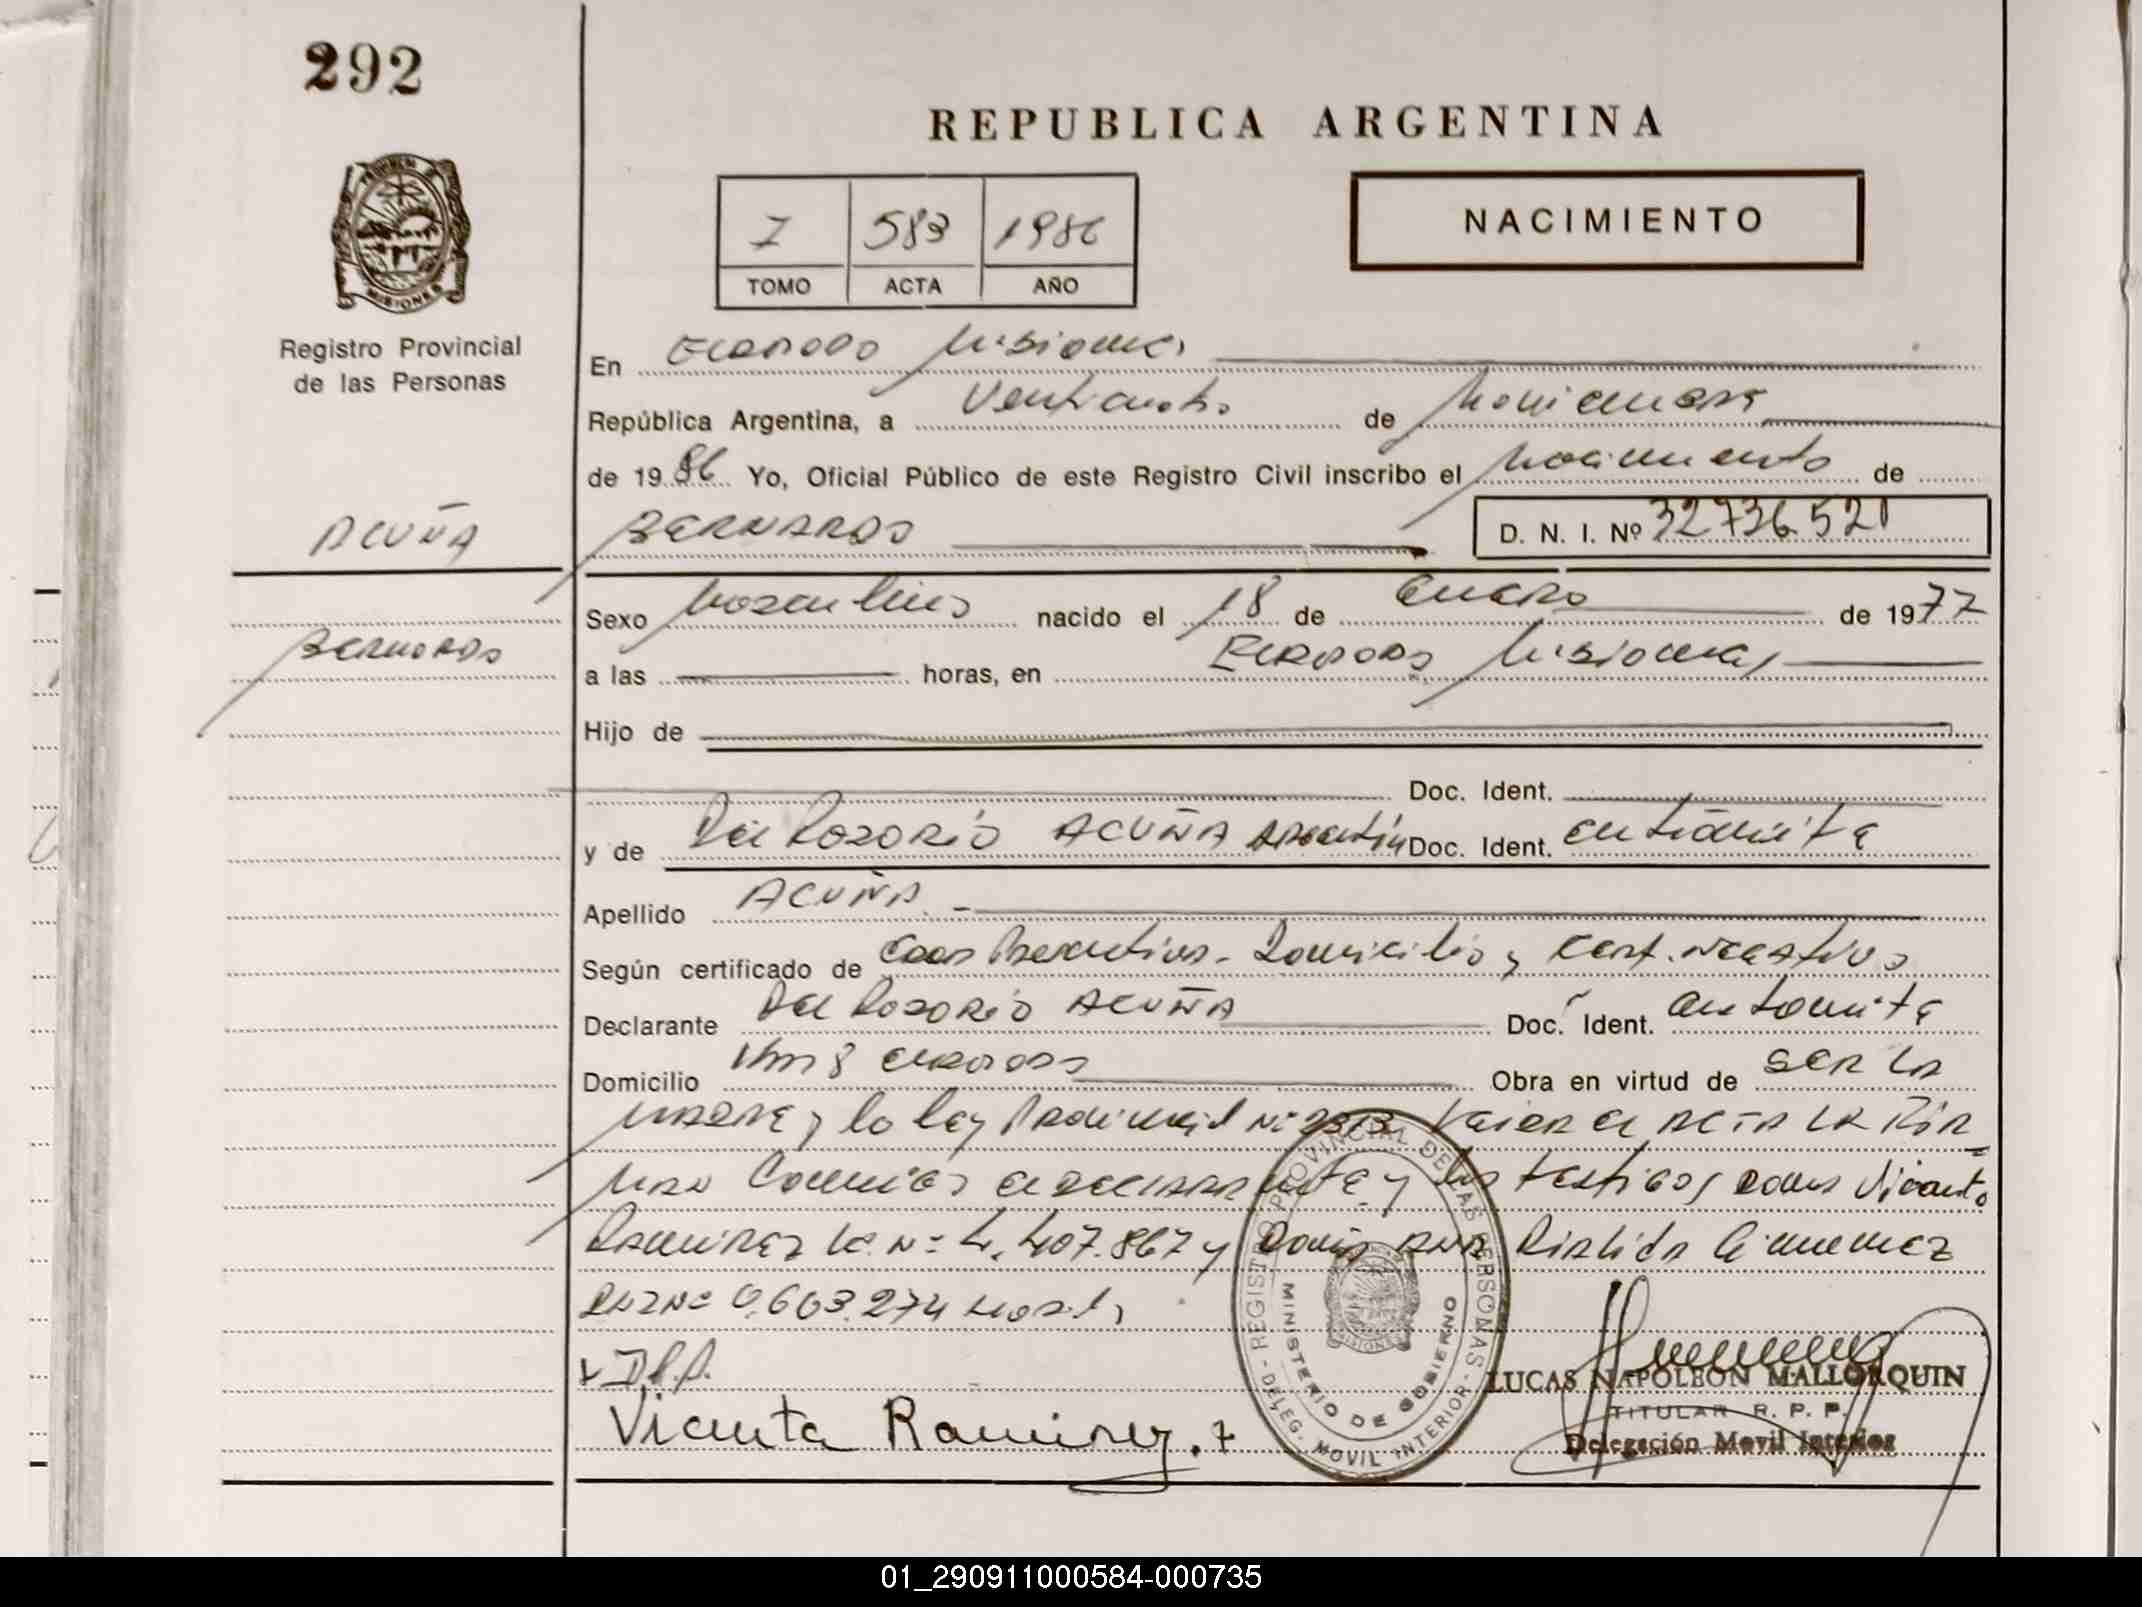 292
REPUBLICA ARGENTINA
NACIMIENTO
583 1986
TOMO ACTA AÑO
MISIONES
Registro Provincial
de las Personas
En Eldorado Misiones
República Argentina, a Veinticuatro de
de 1986 Yo, Oficial Público de este Registro Civil inscribo el Nacimiento de
ACUÑA
BERNARDO
D. N. I. Nº 32736521
Bernardo
Sexo Masculino nacido el 18 de Enero de 1977
a las horas, en Eldorado, Misiones,
Hijo de
Doc. Ident.
y de Del Rosario ACUÑA Doc. Ident. en trámite
Apellido ACUÑA
Según certificado de Domicilio y Cert. Negativo
Declarante Del Rosario ACUÑA Doc. Ident. en tramite
Domicilio Km 8 Eldorado Obra en virtud de ser la
madre y la ley Provincial Nº
conmigo y los testigos Vicenta
Ramirez 4.407.867 y Gimenez
6.603.274
Vicenta Ramirez
REGISTRO PROVINCIAL DE LAS PERSONAS
DELEG. MOVIL INTERIOR
MINISTERIO DE GOBIERNO
LUCAS NAPOLEON MALLORQUIN
TITULAR R. P. P.
Delegación Movil Interior
01_290911000584-000735